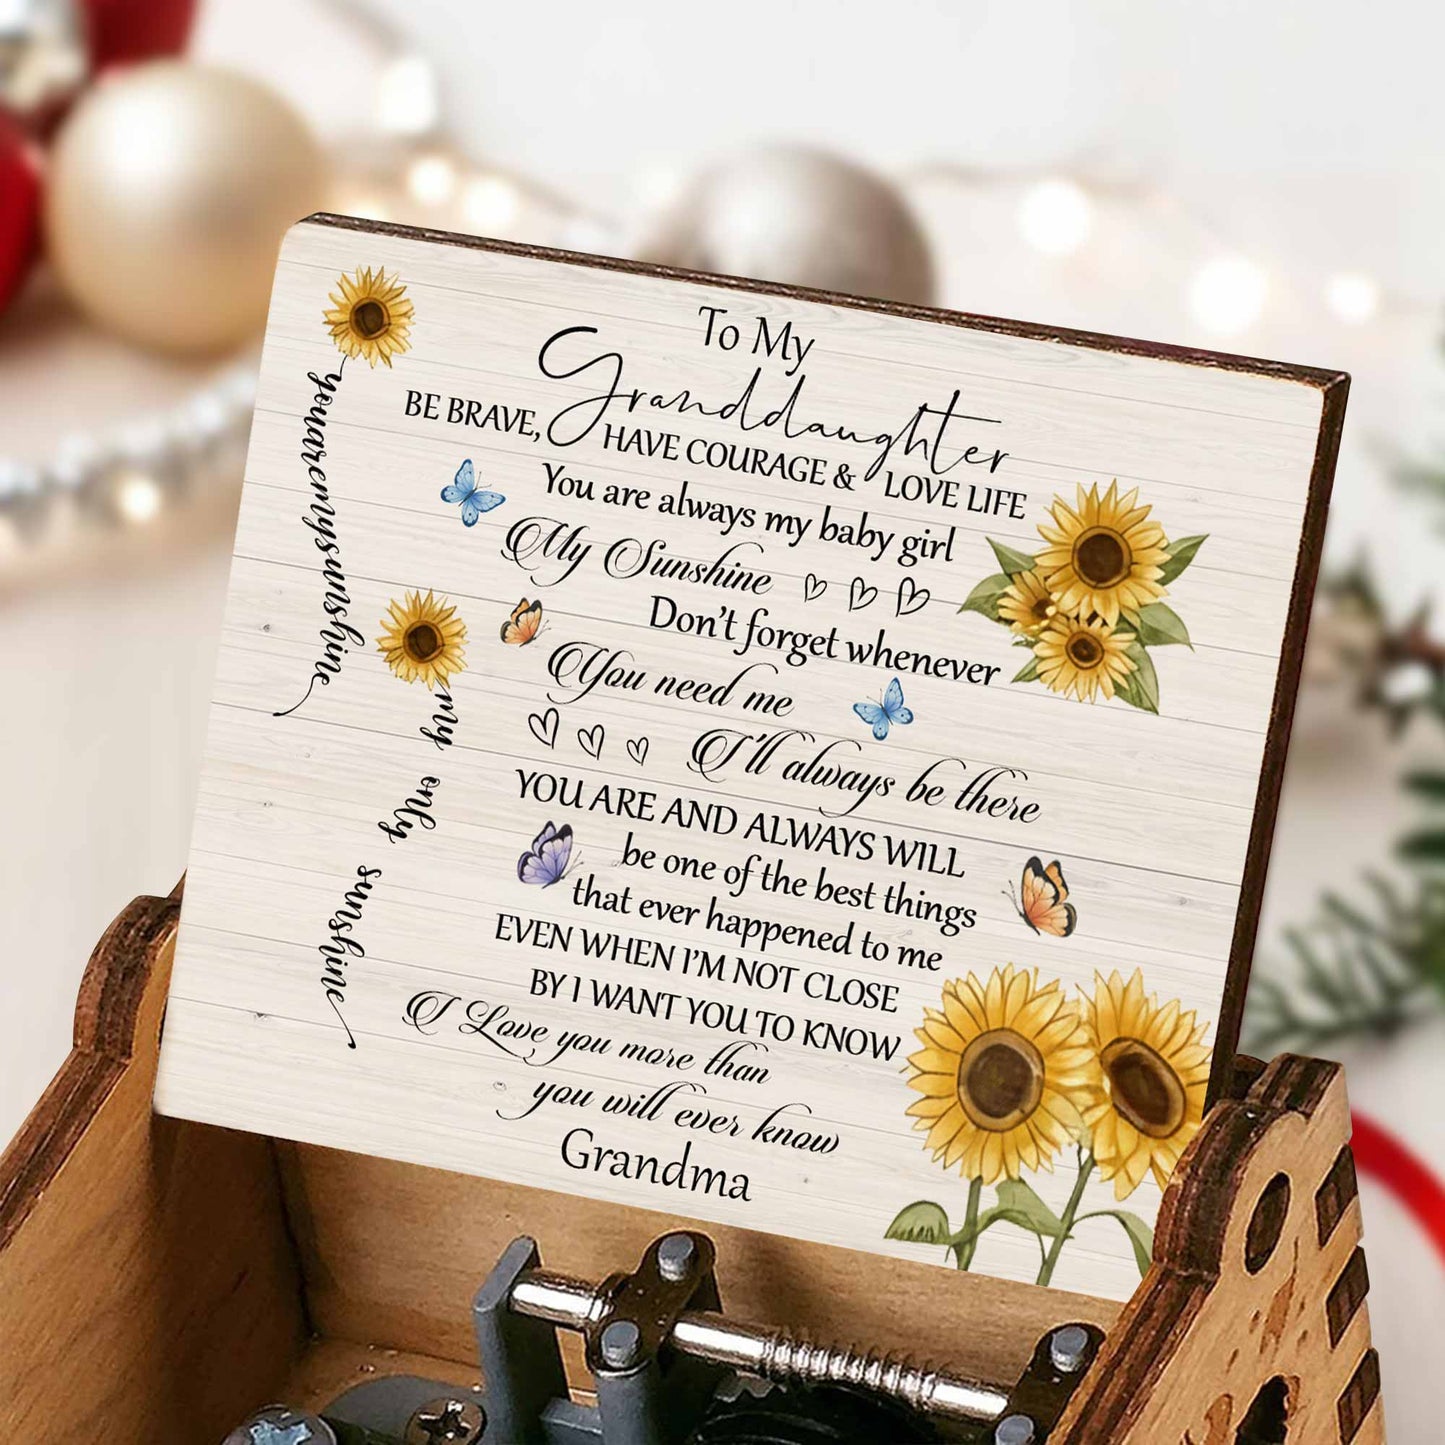 To My
Granddaughter
BE BRAVE, HAVE COURAGE & LOVE LIFE
You are always my baby girl
My Sunshine
Don't forget whenever
You need me
I'll always be there
YOU ARE AND ALWAYS WILL
be one of the best things
that ever happened to me
EVEN WHEN I'M NOT CLOSE
BY I WANT YOU TO KNOW
I Love you more than
you will ever know
Grandma
youaremysunshine
my only sunshine